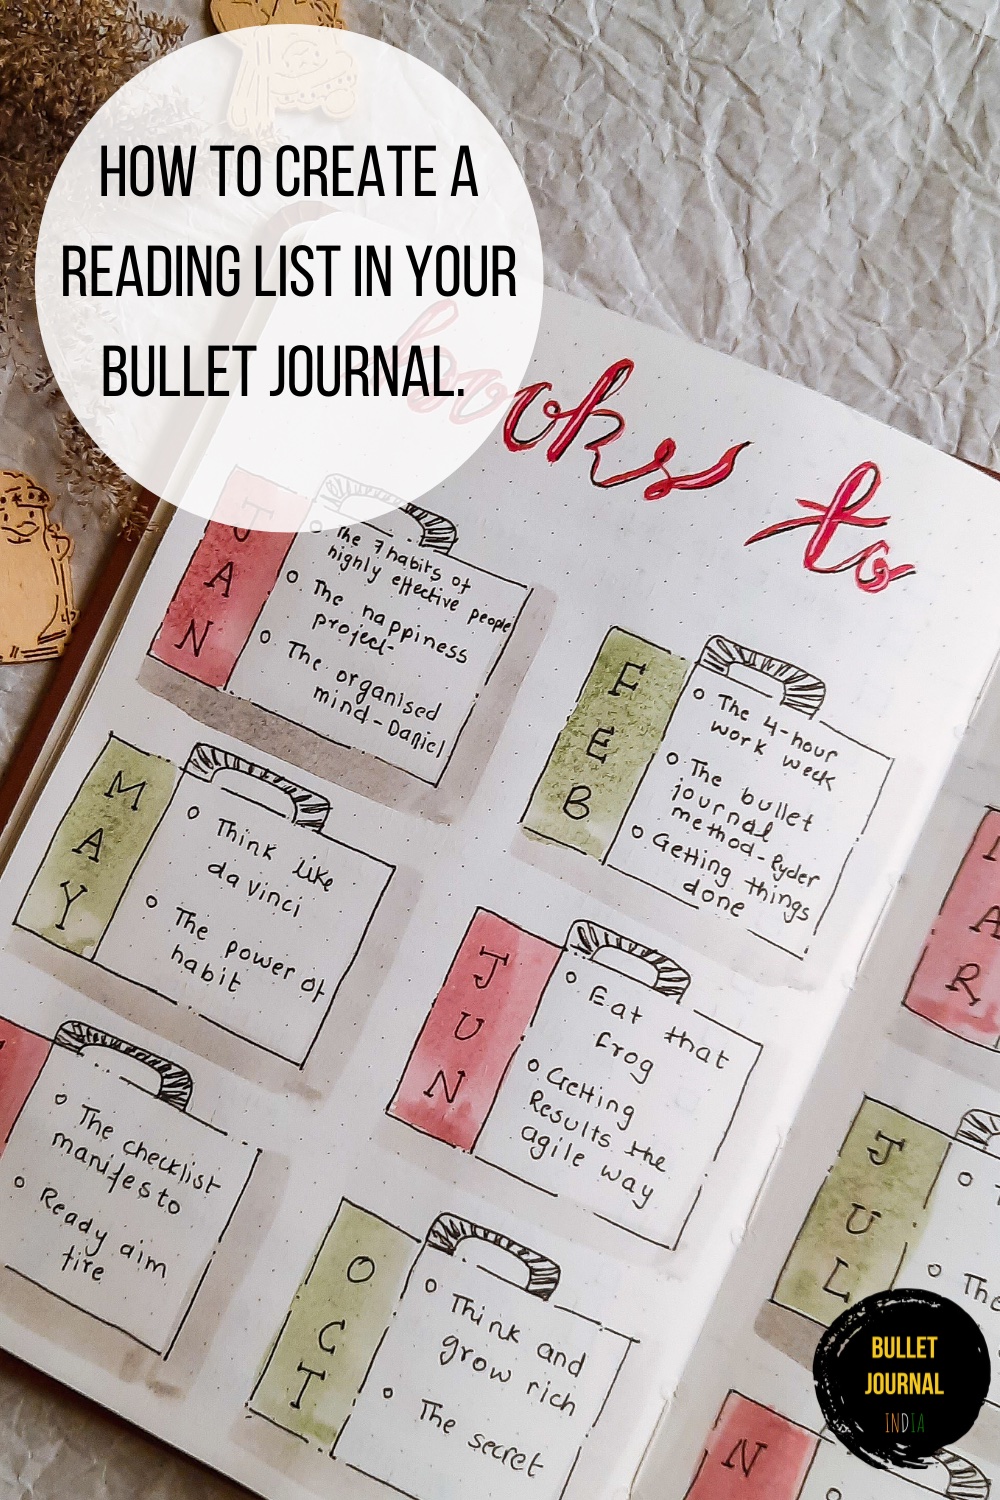 HOW TO CREATE A
READING LIST IN YOUR
BULLET JOURNAL.
books to
JAN
The 7 habits of
highly effective people
The happiness
project
The organised
mind - Daniel
FEB
The 4-hour
work week
The bullet
journal
method - Ryder
Getting things
done
MAR
MAY
Think like
da Vinci
The power of
habit
JUN
Eat that
frog
Getting
Results the
agile way
JUL
The
The checklist
manifesto
Ready aim
fire
OCT
Think and
grow rich
The secret
N
BULLET
JOURNAL
INDIA